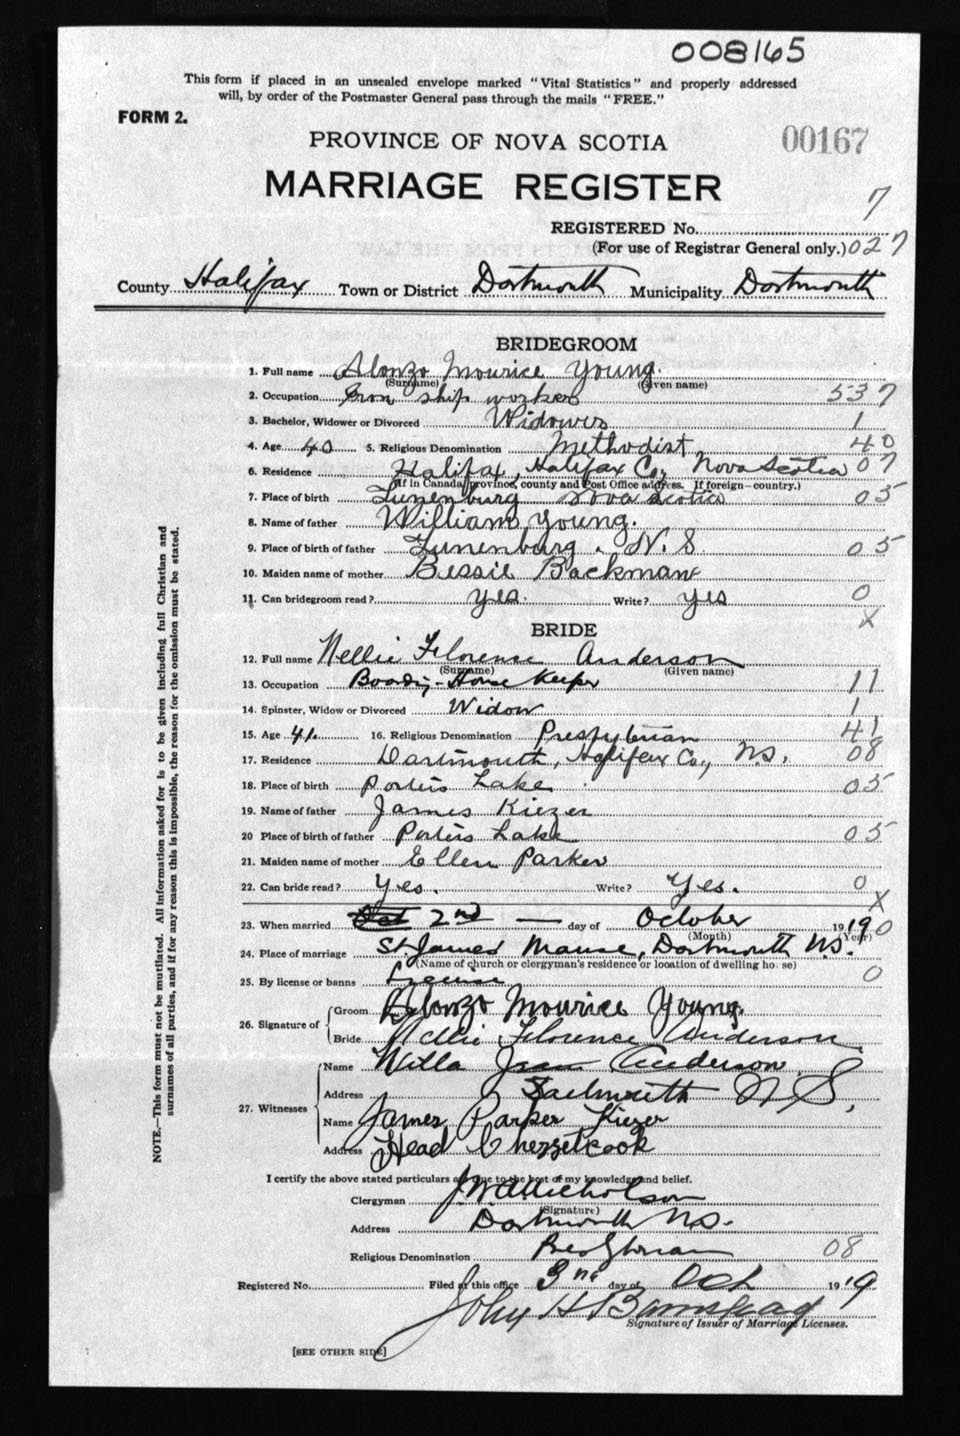 008165
This form if placed in an unsealed envelope marked "Vital Statistics" and properly addressed
will, by order of the Postmaster General pass through the mails "FREE."
FORM 2.
PROVINCE OF NOVA SCOTIA
00167
MARRIAGE REGISTER
7
REGISTERED No.
(For use of Registrar General only.) 027
County Halifax Town or District Dartmouth Municipality Dartmouth
BRIDEGROOM
1. Full name Alonzo Mourice Young.
(Surname) (Given name)
2. Occupation Iron ship worker 537
3. Bachelor, Widower or Divorced Widower 1
4. Age 40 5. Religious Denomination Methodist 40
6. Residence Halifax, Halifax Co., Nova Scotia 07
(If in Canada, province, county and Post Office address. If foreign—country.)
7. Place of birth Lunenburg Nova Scotia 05
8. Name of father William Young.
9. Place of birth of father Lunenburg. N. S. 05
10. Maiden name of mother Bessie Backman
11. Can bridegroom read? yes. Write? yes 0
X
BRIDE
12. Full name Nellie Florence Anderson
(Surname) (Given name)
13. Occupation Boarding-House Keeper 11
14. Spinster, Widow or Divorced Widow 1
15. Age 41. 16. Religious Denomination Presbyterian 41
17. Residence Dartmouth, Halifax Co., N.S. 08
18. Place of birth Porters Lake 05
19. Name of father James Kiezer
20 Place of birth of father Porters Lake 05
21. Maiden name of mother Ellen Parker
22. Can bride read? Yes. Write? Yes. 0
X
23. When married Oct 2nd — day of October 1919 0
(Month) (Year)
24. Place of marriage St. James Manse, Dartmouth N.S.
(Name of church or clergyman's residence or location of dwelling house)
25. By license or banns License 0
26. Signature of Groom Alonzo Mourice Young.
Bride Nellie Florence Anderson
27. Witnesses Name Willa Jean Anderson
Address Dartmouth N.S.
Name James Parker Kiezer
Address Head Chezzetcook
I certify the above stated particulars are true to the best of my knowledge and belief.
Clergyman J. W. A. Nicholson
(Signature)
Address Dartmouth N.S.
Religious Denomination Presbyterian 08
Registered No. Filed at this office 3rd day of Oct 1919
John H. Barnstead
Signature of Issuer of Marriage Licenses.
[SEE OTHER SIDE]
NOTE.—This form must not be mutilated. All information asked for is to be given including full Christian and
surnames of all parties, and if for any reason this is impossible, the reason for the omission must be stated.